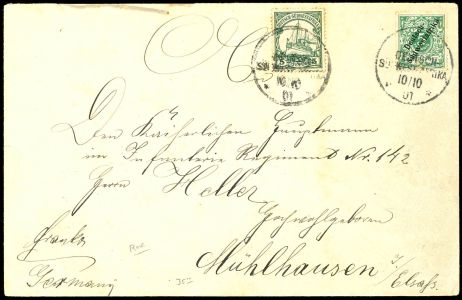 SÜDWESTAFRIKA
10/10
01
10/10
01
Den Kaiserlichen Hauptmann
im Infanterie Regiment Nr. 142
Herrn Heller
Hochwohlgeboren
Mühlhausen i/
Elsaß.
Franko
Germany